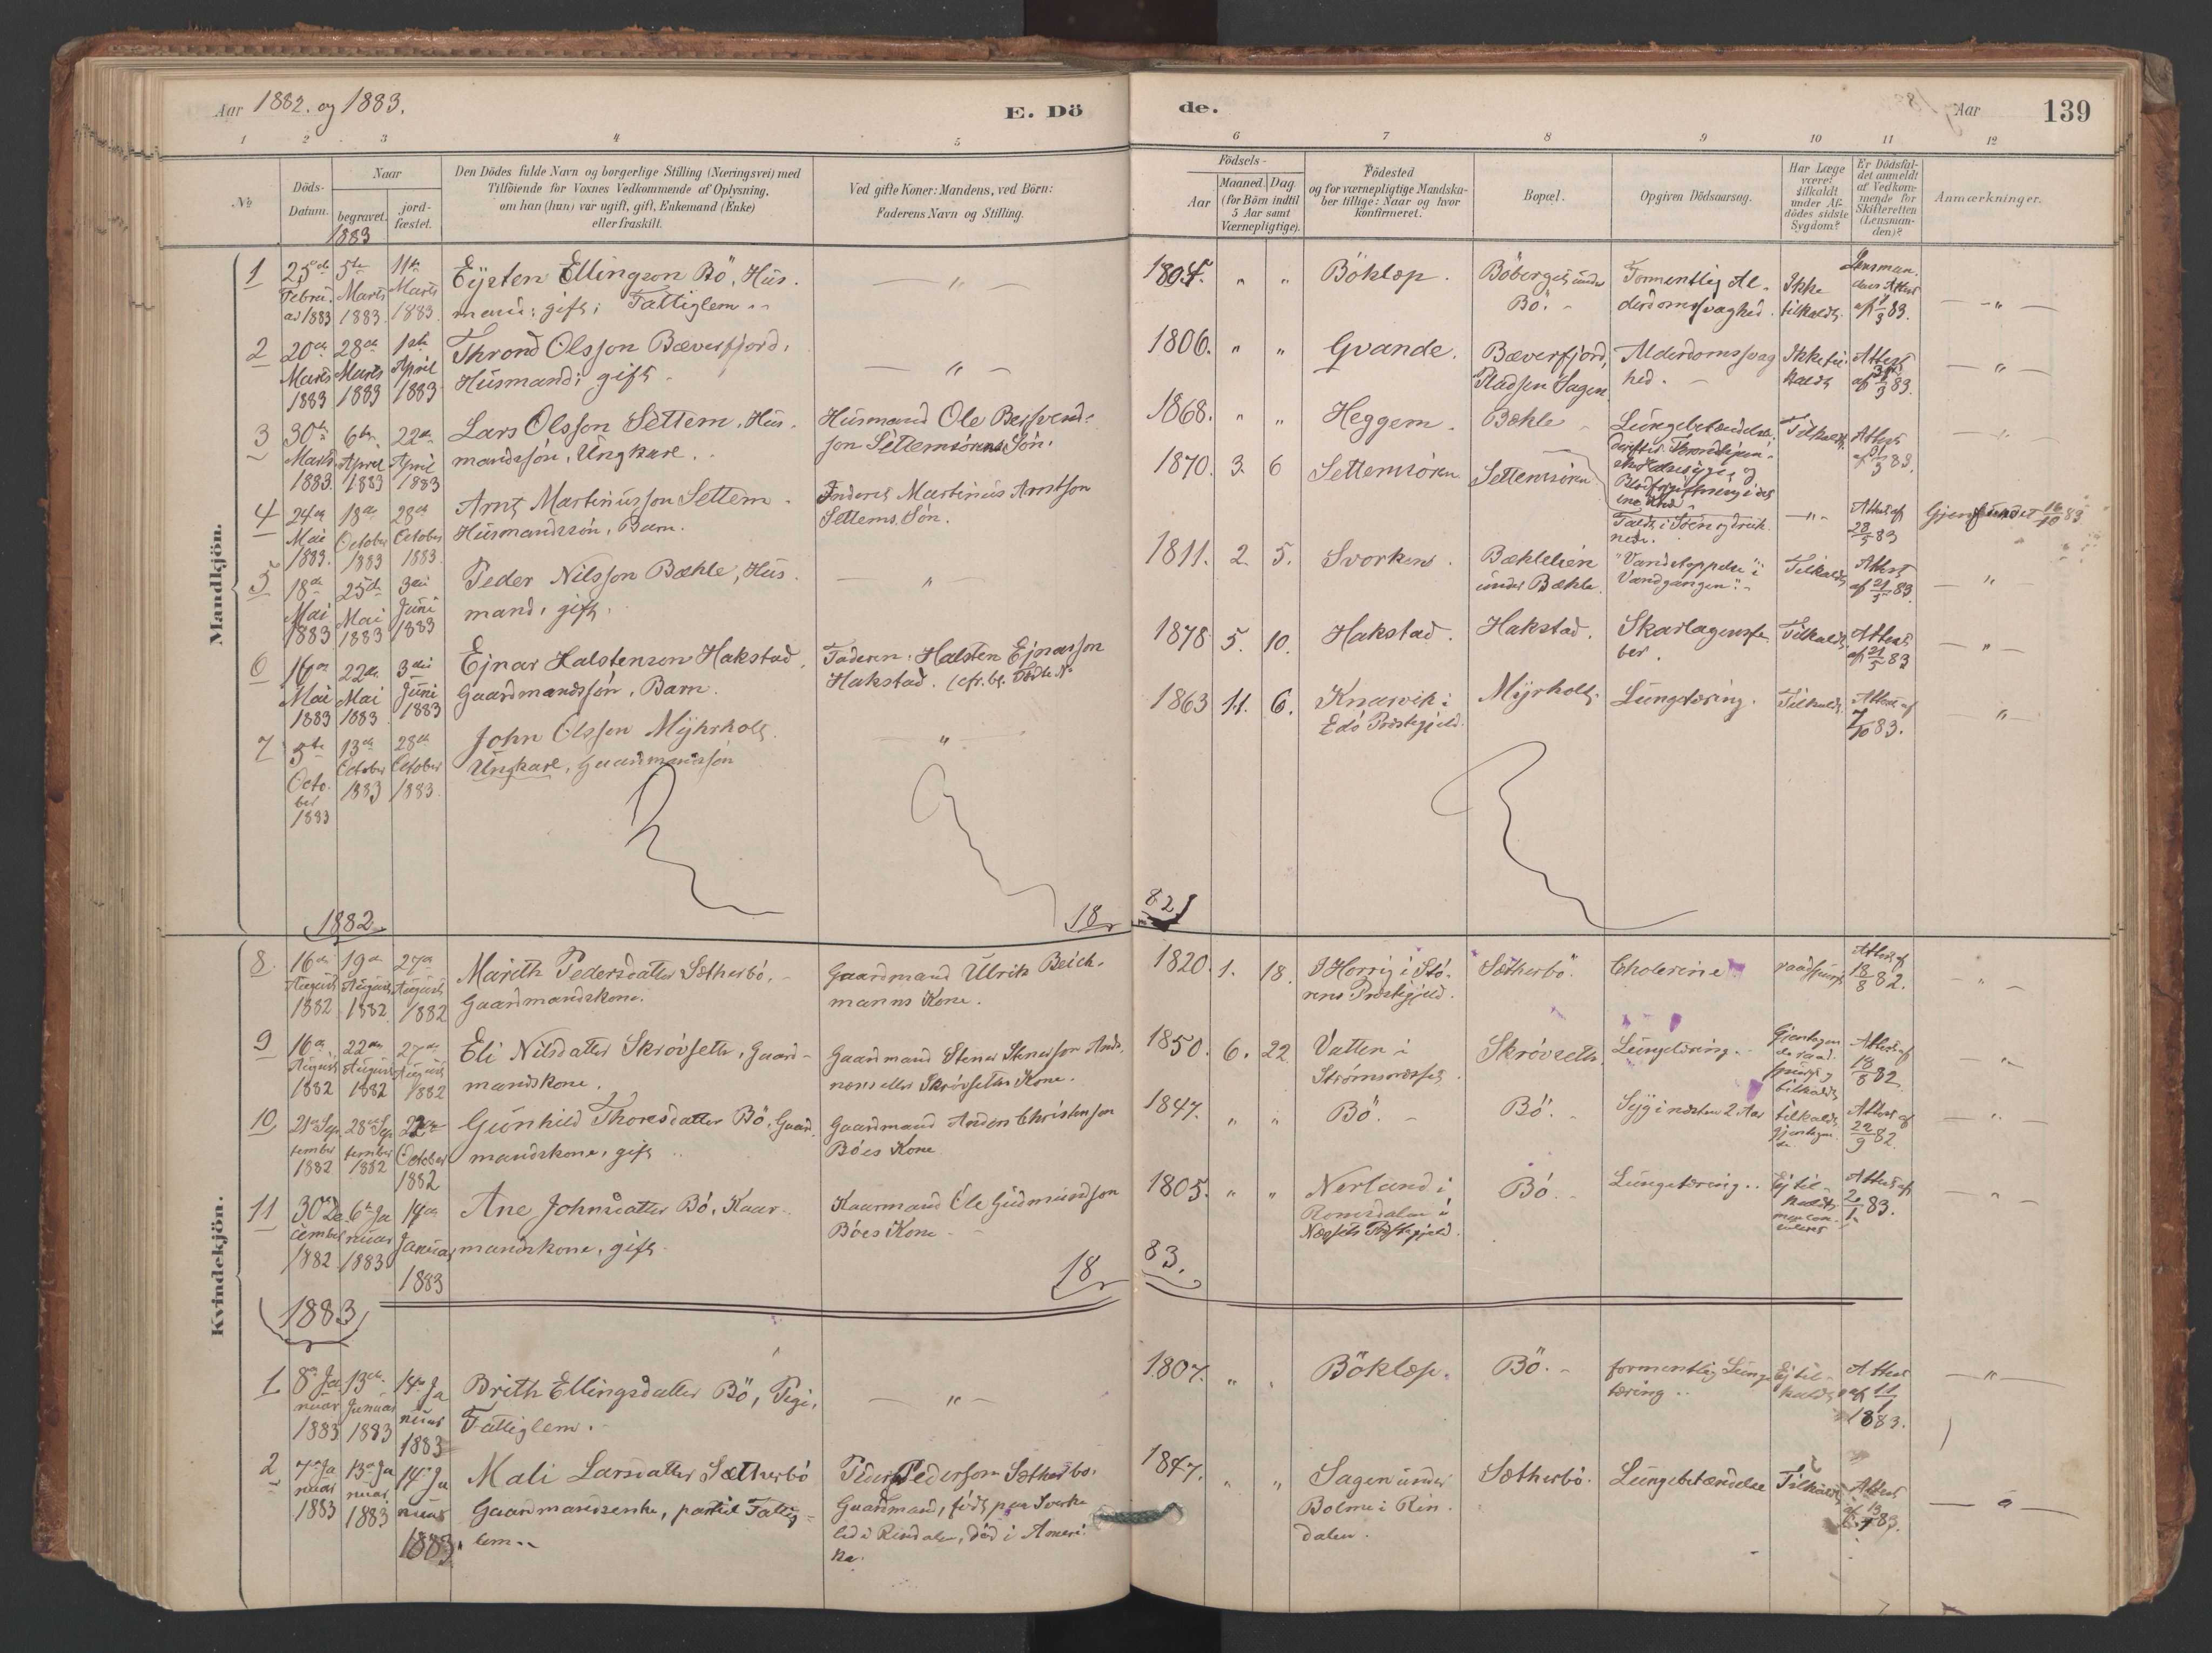 Aar 1882. og 1883.
E. Dö
de.
Aar
139
1 2 3 4 5 6 7 8 9 10 11 12
No
Döds-
Datum.
Naar
begravet.
jord-
fæstet.
Den Dödes fulde Navn og borgerlige Stilling (Næringsvei) med
Tilföiende for Voxnes Vedkommende af Oplysning,
om han (hun) var ugift, gift, Enkemand (Enke)
eller fraskilt.
Ved gifte Koner: Mandens, ved Börn:
Faderens Navn og Stilling.
Födsels-
Aar
Maaned. Dag
(for Börn indtil
5 Aar samt
Værnepligtige).
Födested
og for værnepligtige Mandska-
ber tillige: Naar og hvor
konfirmeret.
Bopæl.
Opgiven Dödsaarsag.
Har Læge
været
tilkaldt
under Af-
dödes sidste
Sygdom?
Er Dödsfal-
det anmeldt
af Vedkom-
mende for
Skifteretten
(Lensman-
den)?
Anmærkninger.
Mandkjön.
1883
1
25de
Februar
1883
5te
Marts
1883
11te
Marts
1883
Eysten Ellingson Bö, Hus-
mand; gift; Fattiglem
1804.
Böklep.
Böberget under
Bö.
Formentlig Al-
derdomssvaghed.
Ikke
tilkaldt.
Lensman-
dens Attest
af 1/3 83.
2
20de
Marts
1883
28de
Marts
1883
1ste
April
1883
Thrond Olsson Bæverfjord,
Husmand; gift
1806.
Gvande.
Bæverfjord,
Pladsen Sagen
Alderdomssvag
hed.
Ikke til-
kaldt
Attest
af 31/3 83.
3
30te
Marts
1883.
6te
April
1883
22de
April
1883
Lars Olsson Settem, Hus-
mandssön, Ungkarl.
Husmand Ole Bersvend-
son Settemsörens Sön.
1868.
Heggem.
Bæhle
Lungebetændelse;
Tilkaldt.
Attest
af 31/3 83.
4
24de
Mai
1883.
18de
October
1883
28de
October
1883.
Arnt Martinusson Settem
Husmandssön, Barn.
Inderst Martinus Arntson
Settems Sön.
1870. 3. 6
Settemsören
Settemsören
Faldt i Söen og druk-
nede.
Attest af
28/5 83
Gjenfundet 16/10 83
5
18de
Mai
1883
25de
Mai
1883
3die
Juni
1883
Peder Nilsson Bæhle, Hus-
mand, gift.
1811. 2. 5.
Svorkens.
Bæhleleien
under Bæhle.
"Vandstoppelse i
Vandgangen".
Tilkaldt
Attest
af 21/5 83.
6
16de
Mai
1883
22de
Mai
1883
3die
Juni
1883
Ejnar Halstenson Hakstad.
Gaardmandssön, Barn.
Faderen: Halsten Ejnarsson
Hakstad.
1878 5. 10.
Hakstad.
Hakstad.
Skarlagensfe-
ber.
Tilkaldt.
Attest
af 21/5 83
7
5te
Octo-
ber
1883
13de
October
1883
28de
October
1883.
John Olsson Myhrholt.
Ungkarl, Gaardmandssön
1863 11. 6.
Knarvik i
Edö Præstegjeld.
Myrholt.
Lungetæring.
Tilkaldt.
Attest af
7/10 83.
1882
18
82
Kvindekjön.
8.
16de
August
1882
19de
August
1882.
27de
August
1882
Marith Pedersdatter Sætherbö.
Gaardmandskone.
Gaardmand Ulrik Beich-
manns Kone.
1820. 1. 18.
I Horrig i Stö-
rens Præstegjeld.
Sætherbö.
Cholerine
raadspurgt
Attest af
18/8 82.
9
16de
August
1882
22de
August
1882
27de
August
1882
Eli Nilsdatter Skrövseth, Gaard-
mandskone.
Gaardmand Stener Stenersson
Skrövseths Kone.
1850. 6. 22
Vatten i
Skrövseth.
Lungetæring.
Gjentagen-
de raad-
spurgt og
tilkaldt
Attest af
18/8 82.
10
21de Sep-
tember
1882
28de Sep-
tember
1882
22de
October
1882
Gunhild Thoresdatter Bö, Gaard-
mandskone, gift
Gaardmand Anders Christenson
Böes Kone
1847.
Bö.
Bö.
Syg i næsten 2 Aar
tilkaldt
gjentagen-
de
Attest af
22/9 82.
11
30de De-
cember
1882
6te Ja
nuar
1883
14de
Januar
1883
Ane Johnsdatter Bö, Kaar-
mandskone, gift
Kaarmand Ole Gudmundson
Böes Kone
1805.
Nerland i
Romsdalen i
Næssets Præstegjeld.
Bö.
Lungetæring.
Ej til-
kaldt
Attest af
2/1 83.
18
83.
1883
1
8de Ja
nuar
1883
13de
Januar
1883
14de Ja
nuar
1883
Brith Ellingsdatter Bö, Pige,
Fattiglem.
1807.
Böklep.
Bö.
formentlig Lunge
tæring
Ej til-
kaldt
Attest
af 11/1
1883.
2
7de Ja
nuar
1883
13de Ja
nuar
1883
14de Ja
nuar
1883.
Mali Larsdatter Sætherbö
Gaardmandsenke, partiel Fattig-
lem
Peder Pederson Sætherbö.
Gaardmand, födt paa Sverke
lid i Rindalen, död i Ameri-
ka.
1847.
Sagen under
Bolme i Rin-
dalen.
Sætherbö.
Lungebetændelse
Tilkaldt
Attest
af 13/1 83.